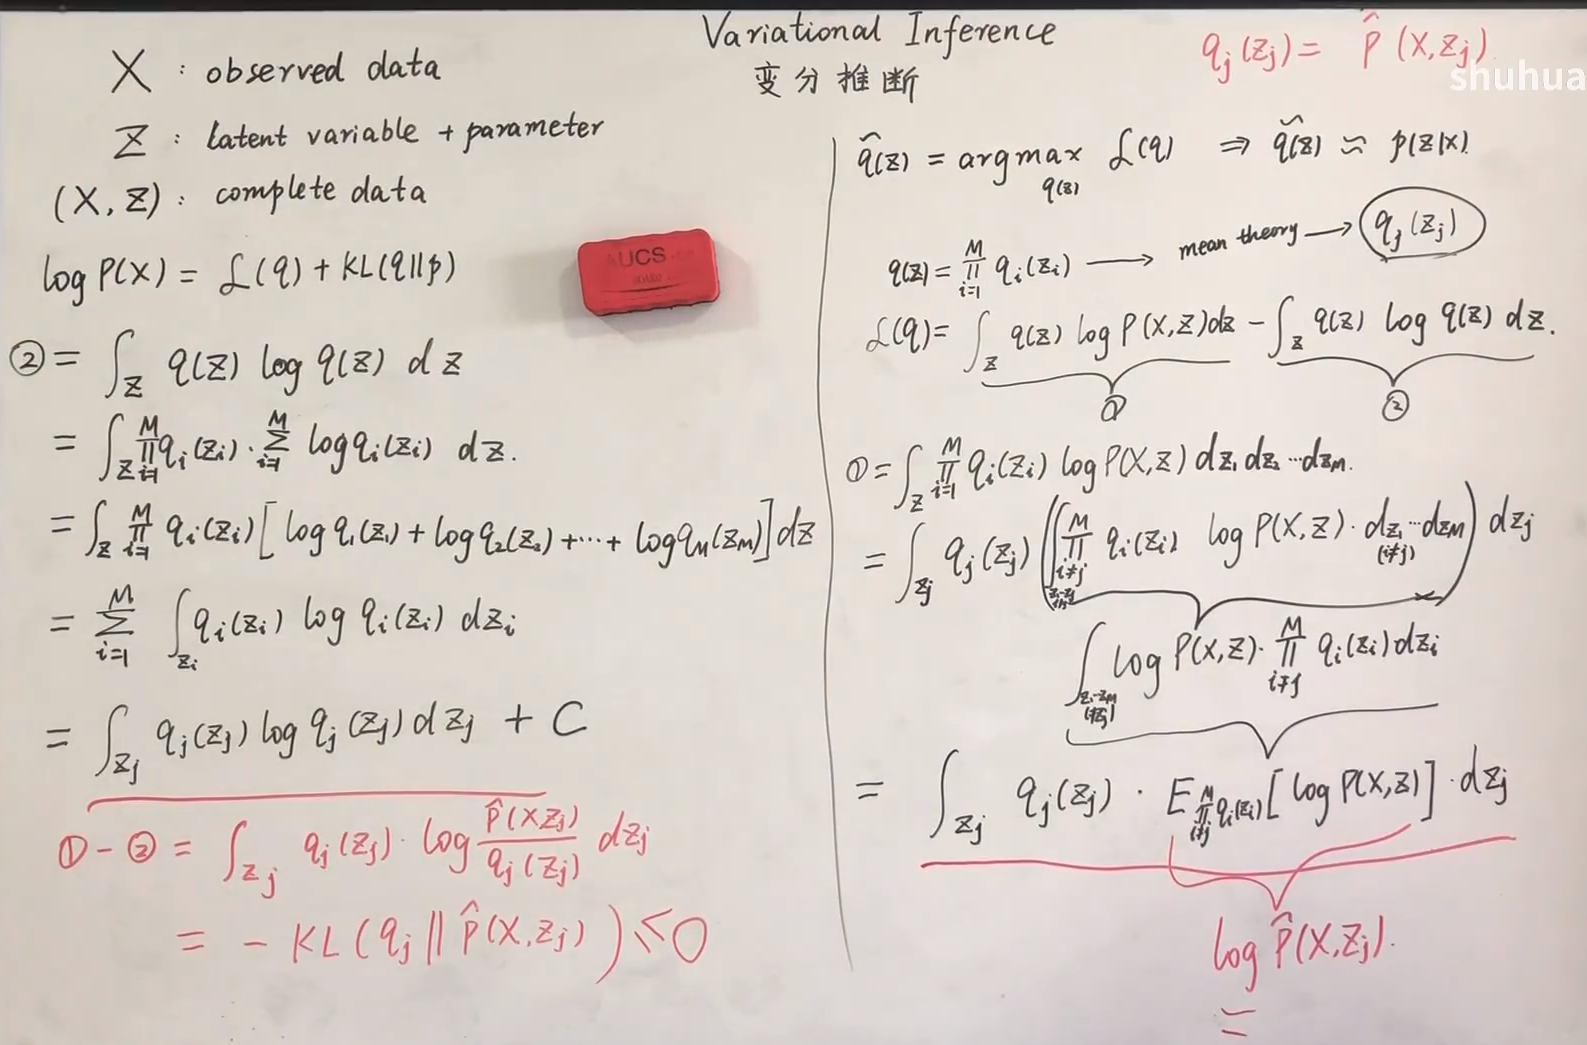 Variational Inference
变分推断
q_j(z_j) = p̂(X, z_j)
shuhua
X : observed data
Z : latent variable + parameter
(X, Z) : complete data
log P(X) = ℒ(q) + KL(q||p)
② = ∫_Z q(Z) log q(Z) dZ
= ∫_Z ∏_{i=1}^M q_i(z_i) · ∑_{i=1}^M log q_i(z_i) dZ.
= ∫_Z ∏_{i=1}^M q_i(z_i) [log q_1(z_1) + log q_2(z_2) + ··· + log q_M(z_M)] dZ
= ∑_{i=1}^M ∫_{z_i} q_i(z_i) log q_i(z_i) dz_i
= ∫_{z_j} q_j(z_j) log q_j(z_j) dz_j + C
① - ② = ∫_{z_j} q_j(z_j) · log p̂(X, z_j) / q_j(z_j) dz_j
= - KL(q_j || p̂(X, z_j)) ≤ 0
AUCS
q̂(z) = argmax_{q(z)} ℒ(q) ⇒ q̂(z) ≈ p(z|x).
q(z) = ∏_{i=1}^M q_i(z_i) → mean theory → q_j(z_j)
ℒ(q) = ∫_Z q(z) log P(X, Z) dz - ∫_Z q(z) log q(z) dz.
① ②
① = ∫_Z ∏_{i=1}^M q_i(z_i) log P(X, Z) dz_1 dz_2 ··· dz_M.
= ∫_{z_j} q_j(z_j) (∫ ∏_{i≠j}^M q_i(z_i) log P(X, Z) · dz_1 ··· dz_M (i≠j)) dz_j
∫_{z_1-z_M (i≠j)} log P(X, Z) · ∏_{i≠j}^M q_i(z_i) dz_i
= ∫_{z_j} q_j(z_j) · E_{∏_{i≠j}^M q_i(z_i)} [log P(X, Z)] · dz_j
log p̂(X, z_j).